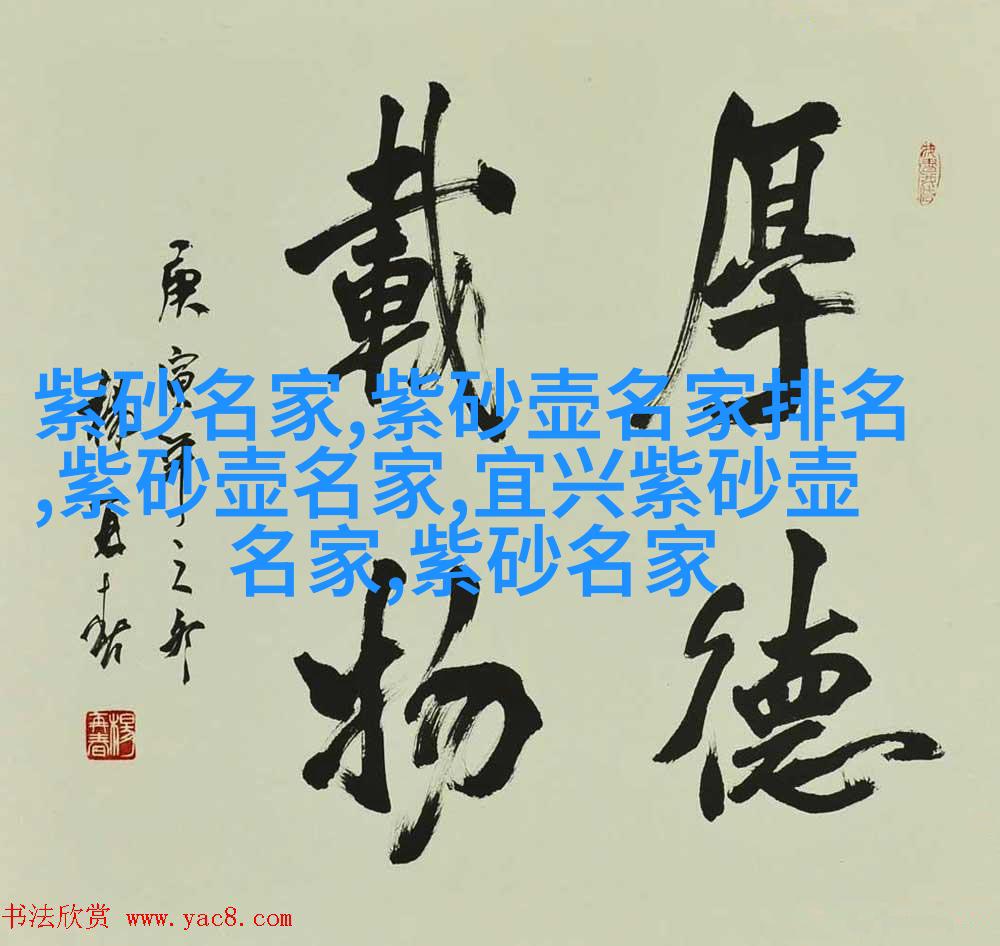 厚德
載物
庚寅
楊再春
楊再春
紫砂名家,紫砂壶名家排名
,紫砂壶名家,宜兴紫砂壶
名家,紫砂名家
书法欣赏 www.yac8.com